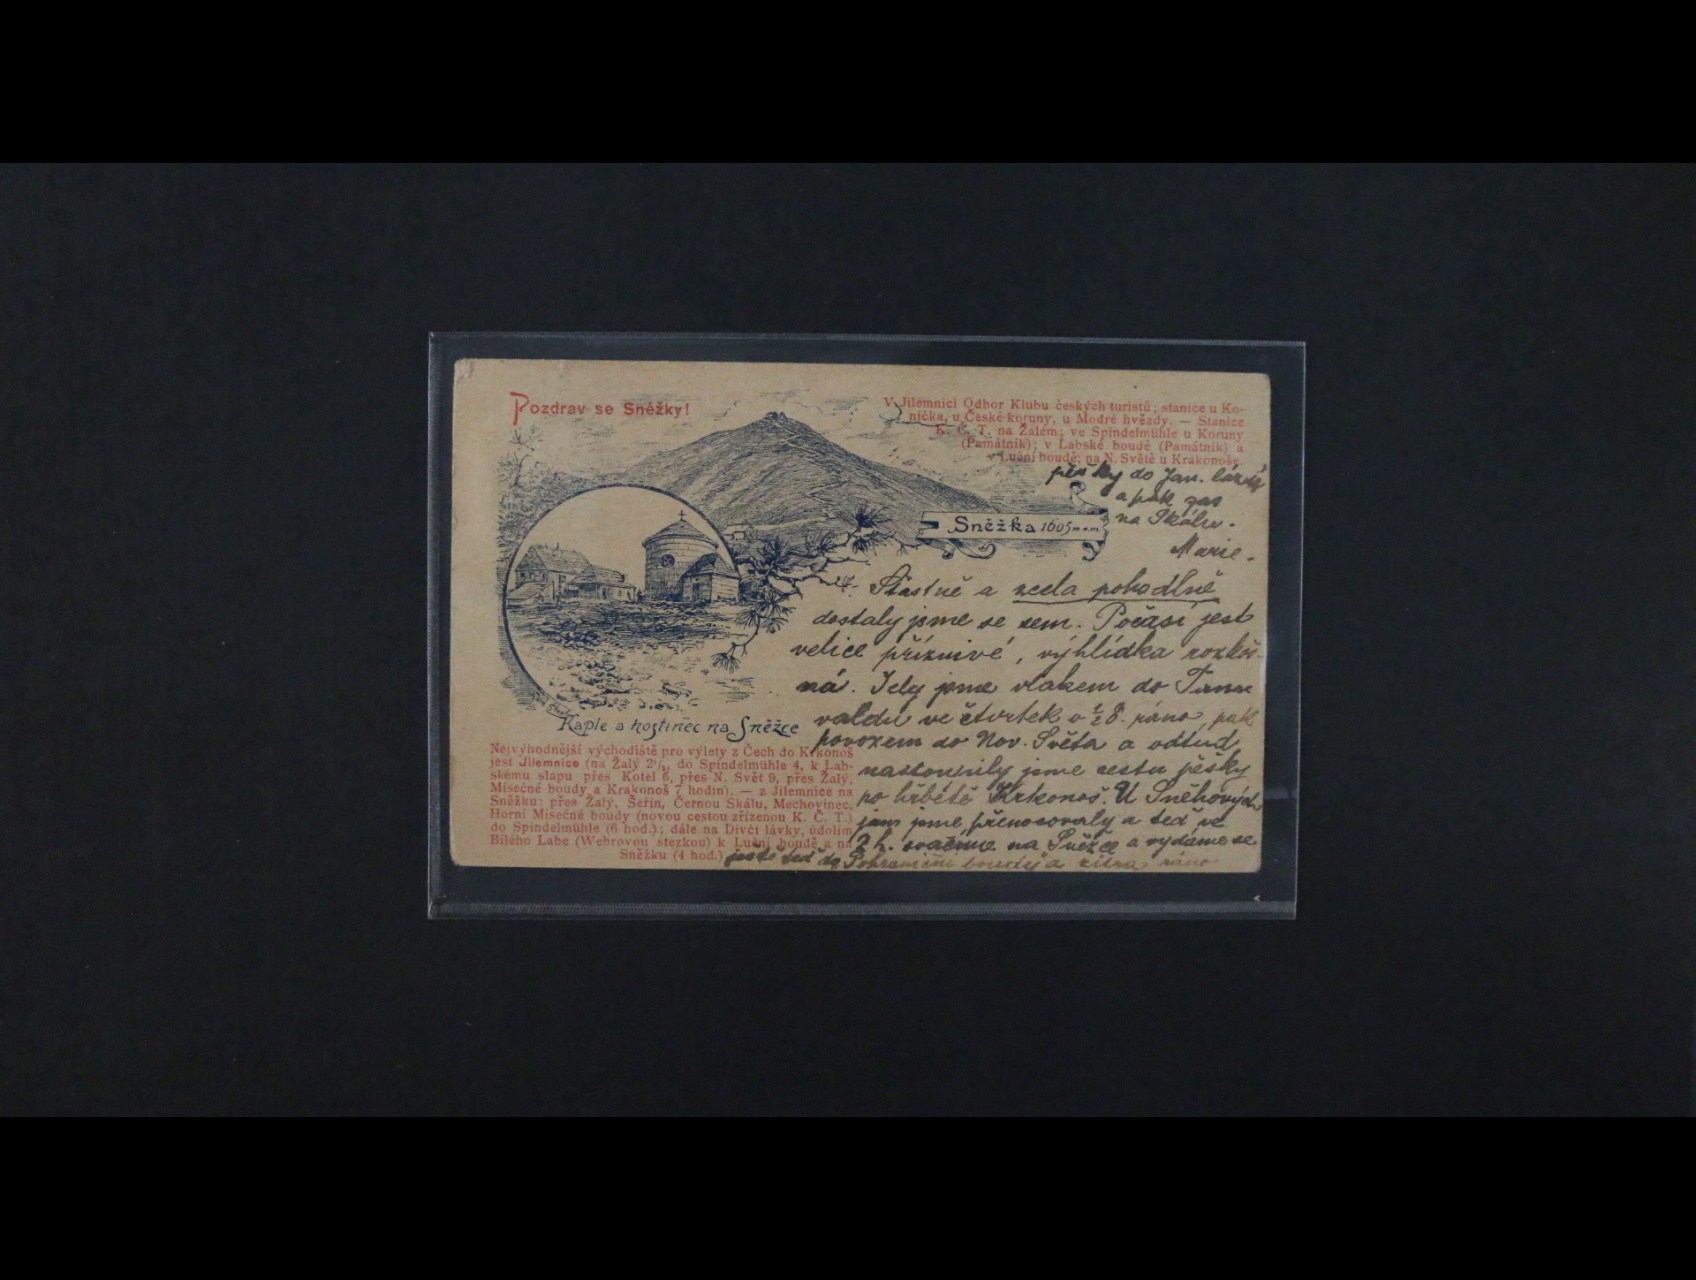 Pozdrav se Sněžky!
V Jilemnici Odbor Klubu českých turistů; stanice u Ko-
níčka, u České koruny, u Modré hvězdy. — Stanice
K. Č. T. na Žalém; ve Spindelmühle u Koruny
(Památník); v Labské boudě (Památník) a
v Luční boudě; na N. Světě u Krakonoše.
pěšky do Jan. lázní
a pak zas
na Skálu.
Marie.
Sněžka 1605 m.n.m.
Šťastně a zcela pohodlně
dostaly jsme se sem. Počasí jest
velice příznivé, výhlídka rozkoš-
ná. Jely jsme vlakem do Tann
valdu ve čtvrtek o ½8. ráno, pak
povozem do Nov. Světa a odtud
nastoupily jsme cestu pěšky
po hřbětě Krkonoš. U Sněhových
jam jsme přenocovaly a teď ve
2 h. svačíme na Sněžce a vydáme se
ještě teď do Pohraniční boudy a zítra ráno
Kaple a hostinec na Sněžce
Nejvýhodnější východiště pro výlety z Čech do Krkonoš
jest Jilemnice (na Žalý 2½, do Spindelmühle 4, k Lab-
skému slapu přes Kotel 6, přes N. Svět 9, přes Žalý,
Mísečné boudy a Krakonoš 7 hodin). — z Jilemnice na
Sněžku: přes Žalý, Šeřín, Černou Skálu, Mechovinec,
Horní Mísečné boudy (novou cestou zřízenou K. Č. T.)
do Spindelmühle (6 hod.); dále na Dívčí lávky, údolím
Bílého Labe (Webrovou stezkou) k Luční boudě a na
Sněžku (4 hod.)